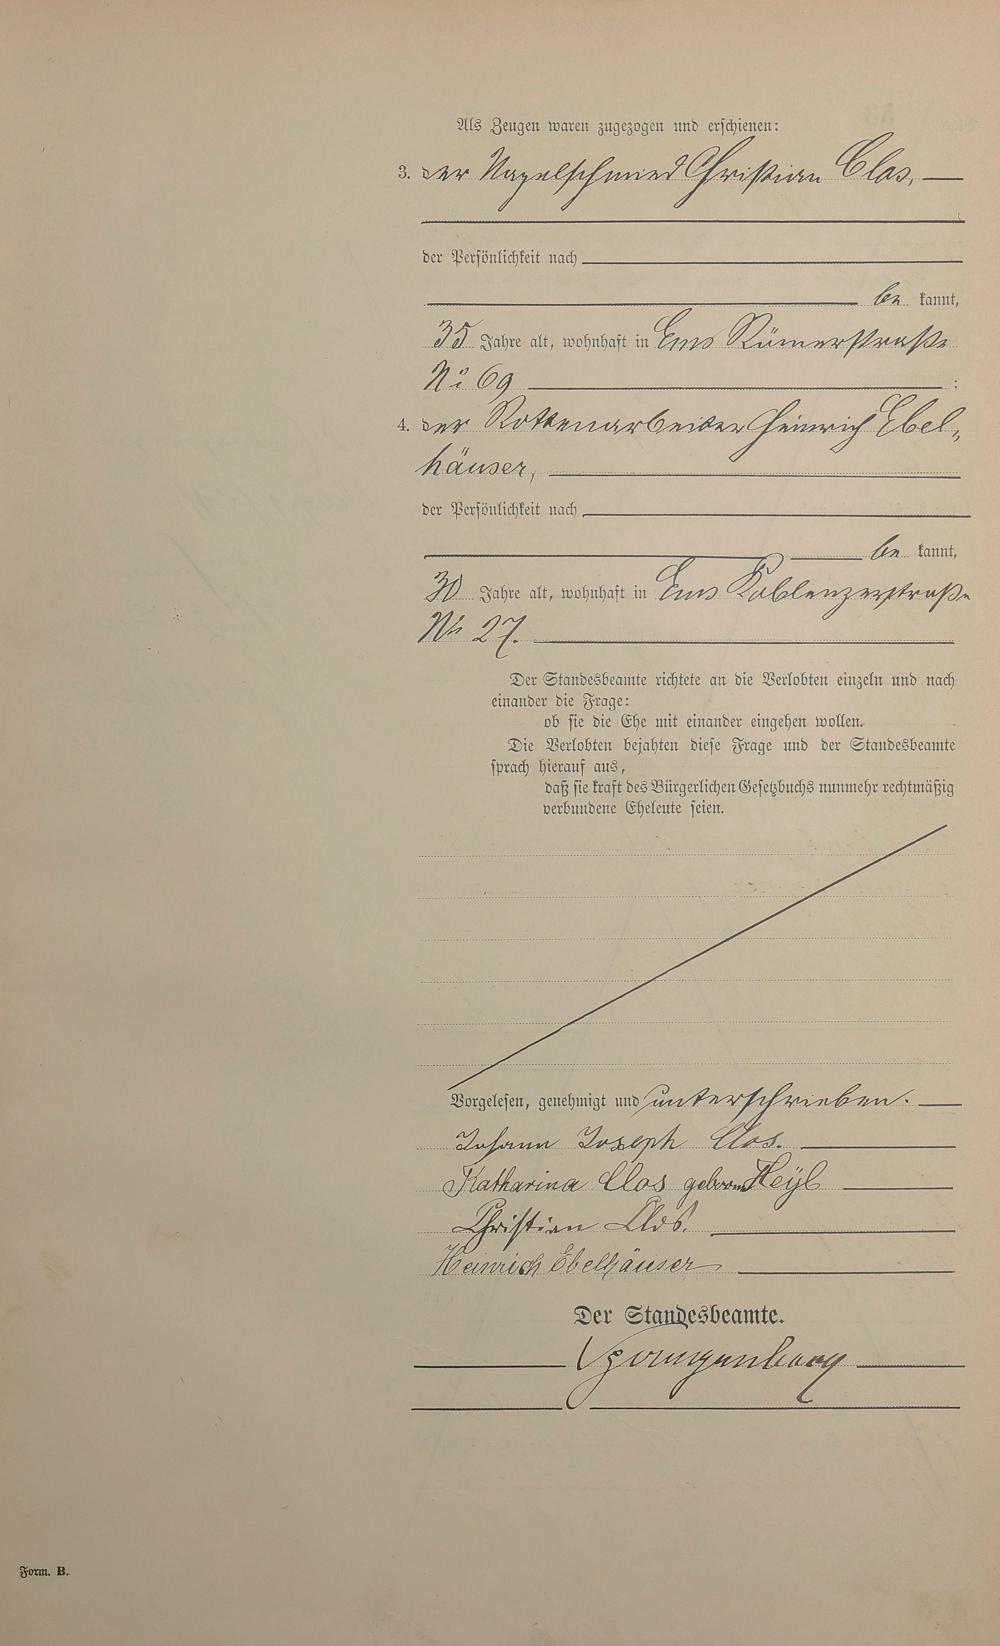 Als Zeugen waren zugezogen und erschienen:
3. der Nagelschmied Christian Clos,
der Persönlichkeit nach
be kannt,
35 Jahre alt, wohnhaft in Ems Römerstraße
No 69 ;
4. der Rottenarbeiter Heinrich Ebel„
häuser,
der Persönlichkeit nach
be kannt,
30 Jahre alt, wohnhaft in Ems Koblenzerstraße
No 27.
Der Standesbeamte richtete an die Verlobten einzeln und nach
einander die Frage:
ob sie die Ehe mit einander eingehen wollen.
Die Verlobten bejahten diese Frage und der Standesbeamte
sprach hierauf aus,
daß sie kraft des Bürgerlichen Gesetzbuchs nunmehr rechtmäßig
verbundene Eheleute seien.
Vorgelesen, genehmigt und unterschrieben.
Johann Joseph Clos.
Katharina Clos geboren Heyl
Christian Clos.
Heinrich Ebelhäuser
Der Standesbeamte.
Form. B.